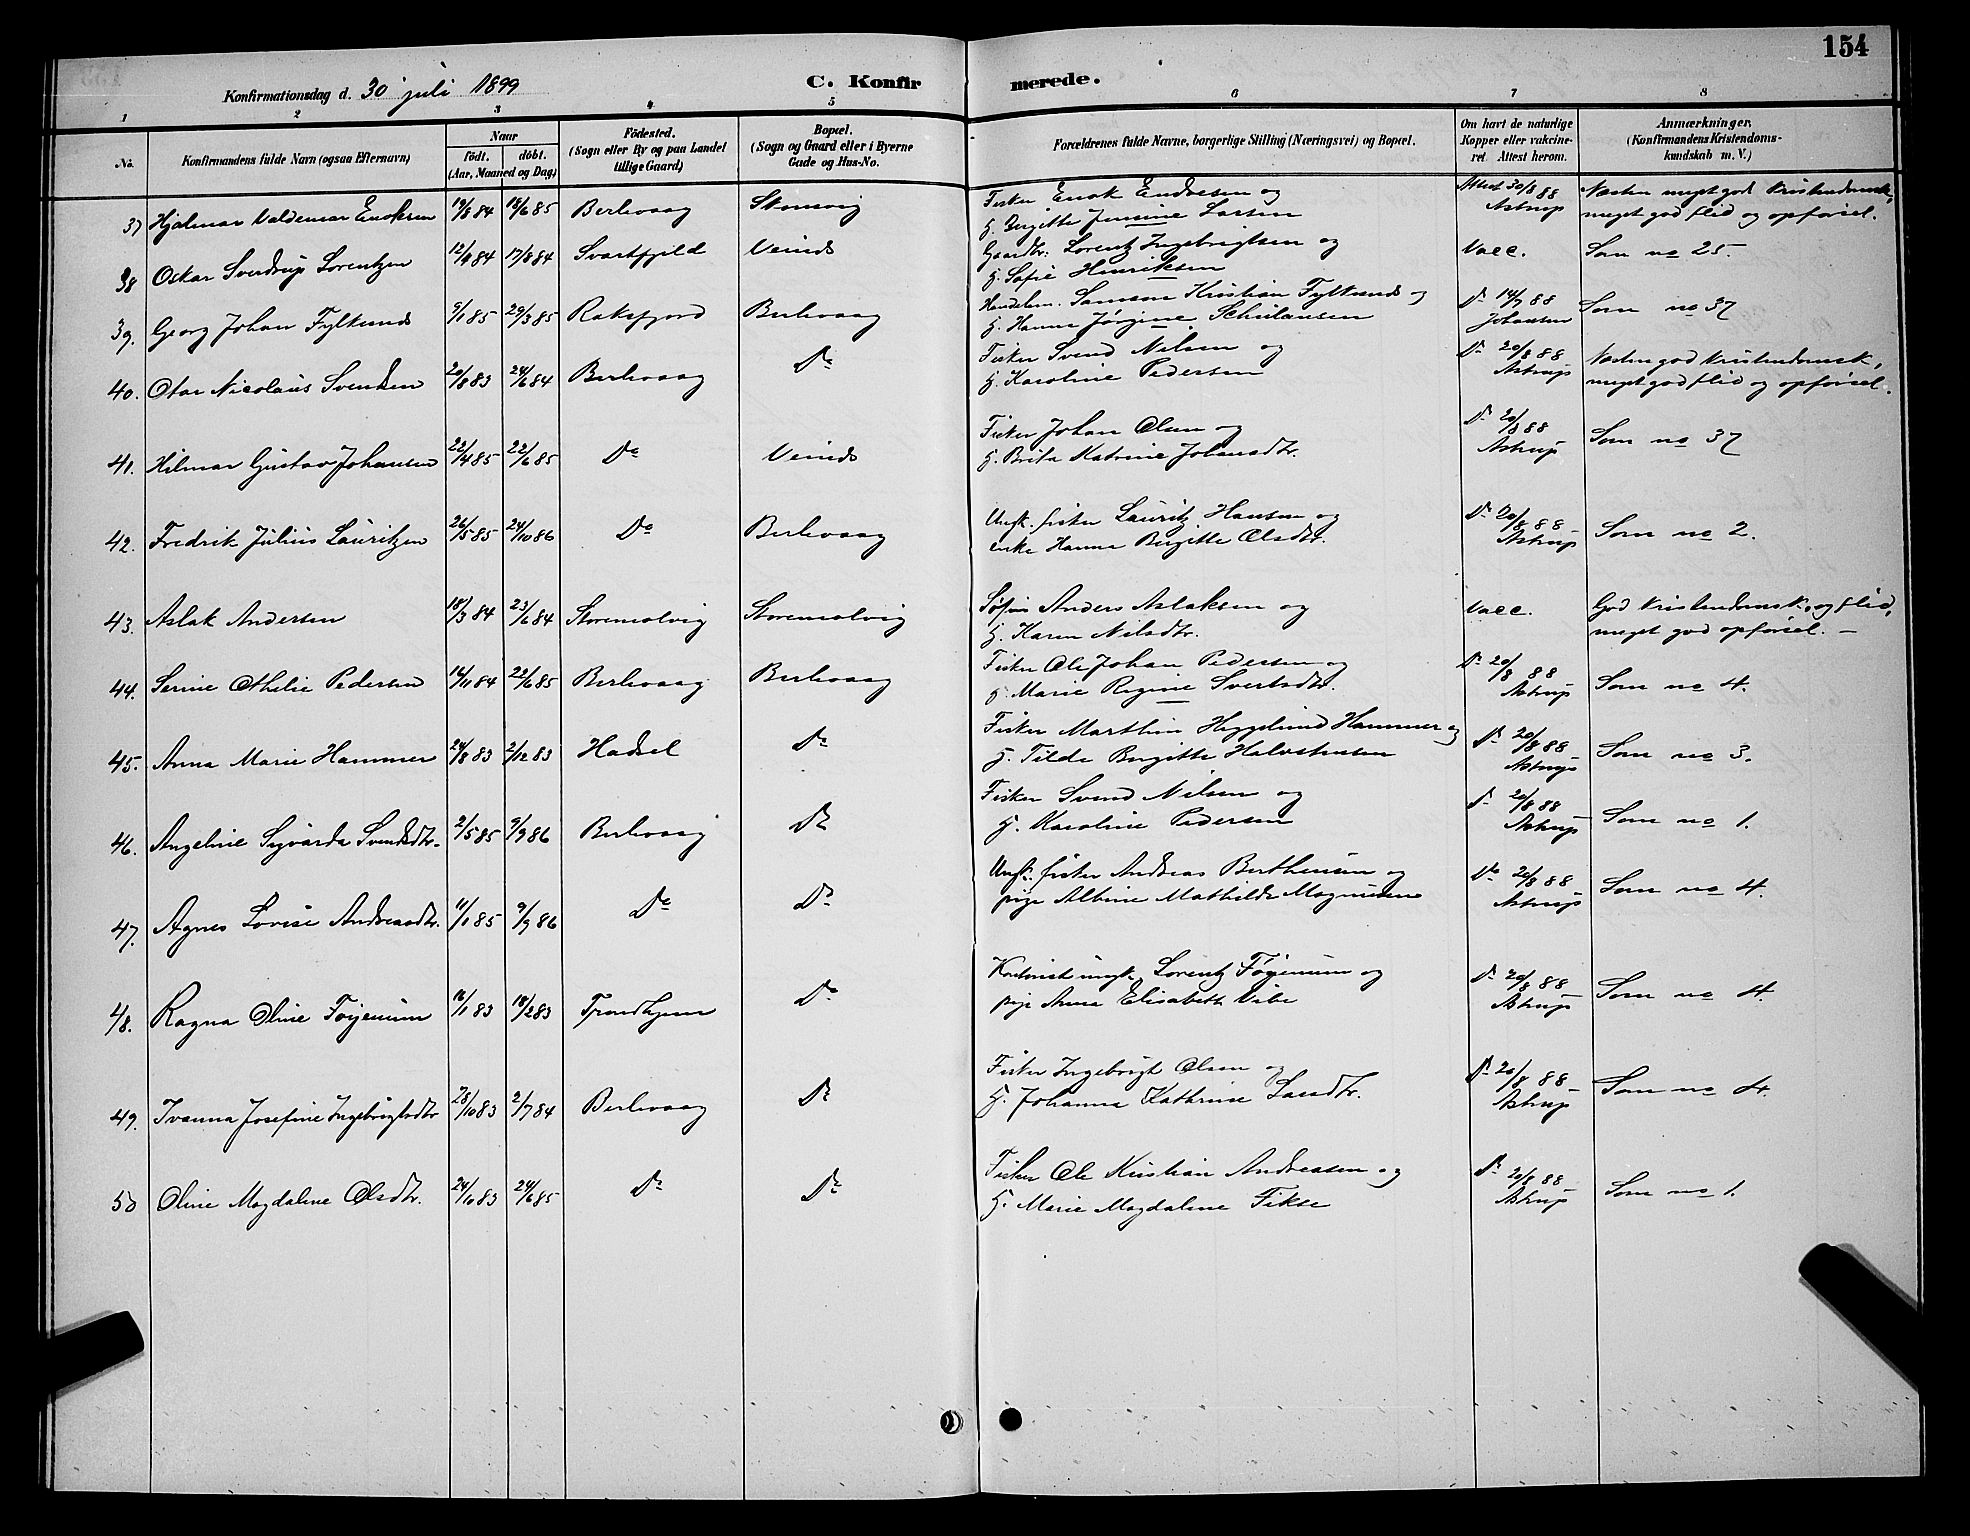 154
Konfirmationsdag d. 30 juli 1899
C. Konfirmerede.
1 2 3 4 5 6 7 8
No.
Konfirmandens fulde Navn (ogsaa Efternavn)
Naar
födt. döbt.
(Aar, Maaned og Dag)
Födested.
(Sogn eller By og paa Landet
tillige Gaard)
Bopæl.
(Sogn og Gaard eller i Byerne
Gade og Hus-No.
Forældrenes fulde Navne, borgerlige Stilling (Næringsvei) og Bopæl.
Om havt de naturlige
Kopper eller vakcine-
ret Attest herom.
Anmærkninger.
(Konfirmandens Kristendoms-
kundskab m. V.)
37 Hjalmar Valdemar Enoksen 19/8 84 18/6 85 Berlevaag
Fisker Enok Endresen og
H. Bergitte Jensine Larsen
Attest 30/8 88
Astrup
Næsten meget god kristendomsk,
meget god flid og opførsel.
38 Oskar Sverdrup Lorentzen 12/4 84 17/8 84 Svartfjeld Veinæs
Gaardbr. Lorentz Ingebrigtsen og
H. Sofie Henriksen
Vacc.
Som no 25.
39. Georg Johan Fylkesnæs 9/1 85 29/3 85 Raksfjord Berlevaag
Handelsm. Samson Kristian Fylkesnæs og
H. Hanna Jørgine
D° 14/7 88
Johansen
Som no 37
40. Otar Nicolaus Svendsen 20/8 83 24/6 84 Berlevaag D°
Fisker Svend Nilsen og
H. Karoline Pedersen
D° 20/8 88
Astrup
Næsten god kristendomsk,
meget god flid og opførsel.
41. Hilmar Gustav Johansen 22/4 85 22/6 85 D° Veinæs
Fisker Johan Olsen og
H. Brita Katrine Johansdtr.
D° 20/8 88
Astrup
Som no 37
42. Fredrik Julius Lauritzen 26/5 85 24/10 86 D° Berlevaag
Ungk. fisker Lauritz Hansen og
enke Hanna Birgitte Olsdtr.
D° 20/8 88
Astrup
Som no 2.
43. Aslak Andersen 18/3 84 23/6 84 Storemolvig Storemolvig
Anders Aslaksen og
H. Karen Nilsdtr.
Vacc.
God kristendomsk. og flid,
meget god opførsel. —
44. Serine Othelie Pedersen 14/11 84 22/6 85 Berlevaag Berlevaag
Fisker Ole Johan Pedersen og
H. Marie Regine
D° 20/8 88
Astrup
Som no 4.
45. Anna Marie Hammer 24/8 83 2/12 83 Hadsel D°
Fisker Marthin Heggelund Hammer og
H. Tilda Birgitte
D° 20/8 88
Astrup
Som no 3.
46. Angeline Sigvarda Svendsdtr. 2/5 85 9/9 86 Berlevaag D°
Fisker Svend Nilsen og
H. Karoline Pedersen
D° 20/8 88
Astrup
Som no 1.
47. Agnes Lovise Andreasdtr. 11/1 85 9/9 86 D° D°
Ungk. fisker Andreas Berthensen og
pige Albine Mathilde Magnusen
D° 20/8 88
Astrup
Som no 4.
48. Ragna Oline Føyenum 16/1 83 18/2 83 Trondhjem D°
Kontorist ungk. Lorentz Føyenum og
pige Anna Elisabeth Vibe
D° 20/8 88
Astrup
Som no 4.
49. Ivanna Josefine Ingebrigtsdtr 28/10 83 2/7 84 Berlevaag D°
Fisker Ingebrigt Olsen og
H. Johanna Kathrine Larsdtr.
D° 20/8 88
Astrup
Som no 4.
50 Oline Magdaline Olsdtr. 24/10 83 24/6 85 D° D°
Fisker Ole Kristian Andreasen og
H. Marie Magdalene Fikse
D° 20/8 88
Astrup
Som no 1.